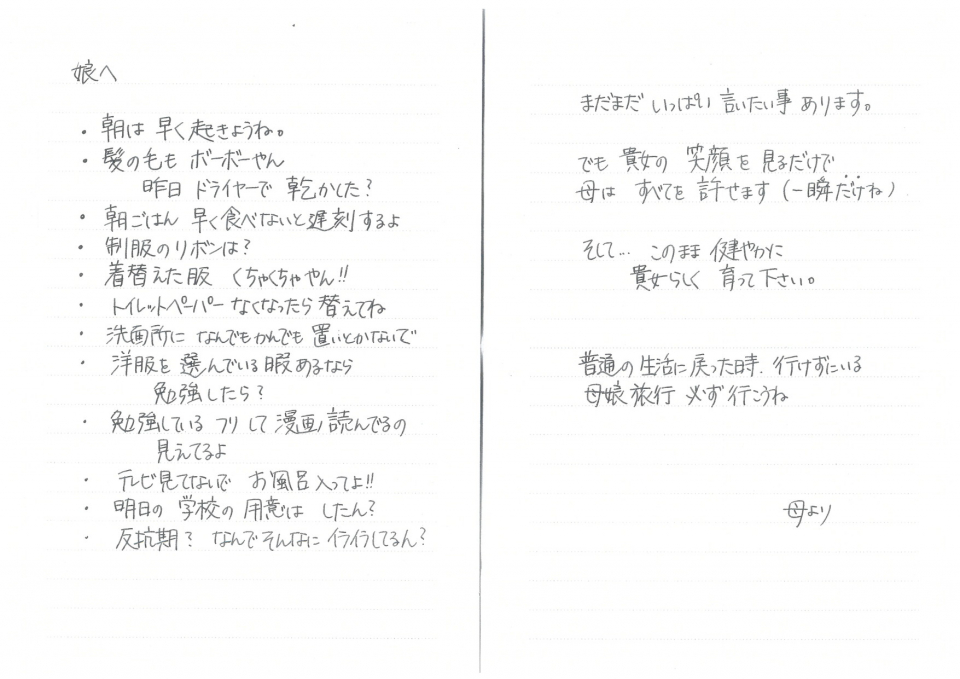 娘へ
・朝は 早く起きようね。
・髪の毛も ボーボーやん
昨日 ドライヤーで 乾かした?
・朝ごはん 早く食べないと遅刻するよ
・制服のリボンは?
・着替えた服 くちゃくちゃやん!!
・トイレットペーパー なくなったら 替えてね
・洗面所に なんでもかんでも 置いとかないで
・洋服を 選んでいる暇あるなら
勉強したら?
・勉強している フリ して 漫画 読んでるの
見えてるよ
・テレビ見てないで お風呂入ってよ!!
・明日の 学校の 用意は したん?
・反抗期? なんでそんなに イライラしてるん?
まだまだ いっぱい 言いたい事 あります。
でも 貴女の 笑顔を 見るだけで
母は すべてを 許せます (一瞬だけね)
そして… このまま 健やかに
貴女らしく 育って下さい。
普通の生活に戻った時、行けずにいる
母娘旅行 必ず行こうね
母より